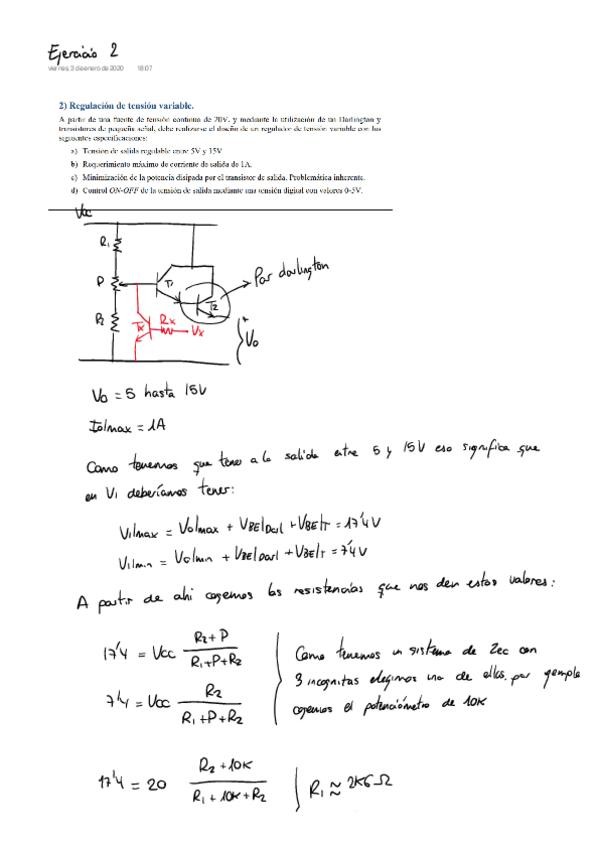 Ejercicio 2
viernes, 3 de enero de 2020 18:07
2) Regulación de tensión variable.
A partir de una fuente de tensión continua de 20V. y mediante la utilización de un Darlington y
transistores de pequeña señal, debe realizarse el diseño de un regulador de tensión variable con las
siguientes especificaciones:
a) Tensión de salida regulable entre 5V y 15V
b) Requerimiento máximo de corriente de salida de 1A.
c) Minimización de la potencia disipada por el transistor de salida. Problemática inherente.
d) Control ON-OFF de la tensión de salida mediante una tensión digital con valores 0-5V.
Vcc
R1
P
T1
Par darlington
R2
Tx
Rx
Vx
T2
+
Vo
Vo = 5 hasta 15V
Io|max = 1A
Como tenemos que tener a la salida entre 5 y 15V eso significa que
en V1 deberíamos tener:
V1|max = Vo|max + VBE|Darl + VBE|T = 17'4V
V1|min = Vo|min + VBE|Darl + VBE|T = 7'4V
A partir de ahí cogemos las resistencias que nos den estos valores:
17'4 = Vcc R2+P / R1+P+R2
7'4 = Vcc R2 / R1+P+R2
Como tenemos un sistema de 2ec con
3 incognitas elegimos una de ellas, por ejemplo
cogemos el potenciómetro de 10K
17'4 = 20 R2+10K / R1+10K+R2
R1 ≈ 2K6 Ω